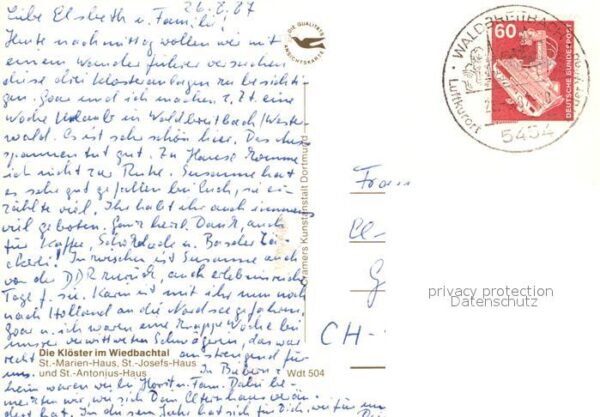 26.8.87
Liebe Elsbeth u. Familie!
Heute nachmittag wollen wir mit
einem Wanderführer versuchen
diese drei Klosteranlagen zu besichti-
gen. und ich machen z. Zt. eine
Woche Urlaub in Waldbreitbach/Wester-
wald. Es ist sehr schön hier. Das Aus-
spannen tut gut. Zu Hause komme
ich nicht zur Ruhe. Susanne hat
es sehr gut gefallen bei Euch, sie er-
zählte viel. Ihr habt ihr auch immens
viel geboten. Ganz herzl. Dank, auch
für Kaffee, Schokolade u. Basler
Inzwischen ist Susanne auch
von der DDR zurück, auch erlebnisreiche
Tage f. sie. Karin ist mit ihr nun noch
nach Holland an die Nordsee gefahren.
u. ich waren eine knappe Woche bei
unserer verwitweten Schwägerin, das war
recht anstrengend für
uns. In
heim waren wir bei Horst u. Fam. Dabei be-
DIE QUALITÄTS
ANSICHTSKARTE
Cramers Kunstanstalt Dortmund
Die Klöster im Wiedbachtal
St.-Marien-Haus, St.-Josefs-Haus
und St.-Antonius-Haus
Wdt 504
WALDBREITBACH
Luftkurort
5454
60
DEUTSCHE BUNDESPOST
Frau
G
CH-
privacy protection
Datenschutz